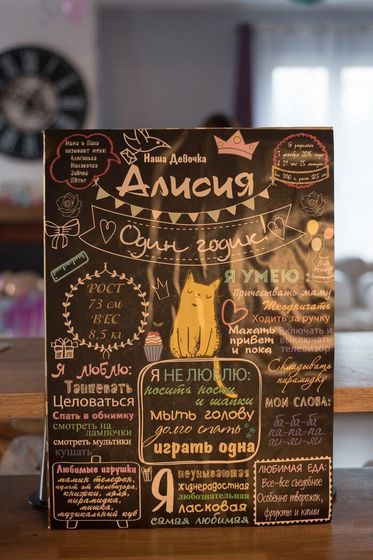 Мама и Папа
называют меня
Алисенька
Зайчик
Наша Девочка
Алисия
Один годик!
Я родилась
5 декабря 2016 года
РОСТ
73 см
ВЕС
8,5 кг
Я УМЕЮ:
Причёсывать маму
Шкодничать
Ходить за ручку
Махать
привет
и пока
Включать и
выключать
телевизор
Складывать
пирамидку
Я ЛЮБЛЮ:
Танцевать
Целоваться
Спать в обнимку
смотреть на
лампочки
смотреть мультики
кушать
Я НЕ ЛЮБЛЮ:
носить носки
и шапки
мыть голову
долго спать
играть одна
МОИ СЛОВА:
ба-ба-ба
па-па-па
ай-яй-яй
Любимые игрушки
мамин телефон,
пульт от телевизора,
книжки, ляля,
пирамидка,
мишка,
музыкальный куб
Я
неунывающая
жизнерадостная
любознательная
ласковая
самая любимая
ЛЮБИМАЯ ЕДА:
Все-все съедобное
Особенно творожок,
фрукты и каши